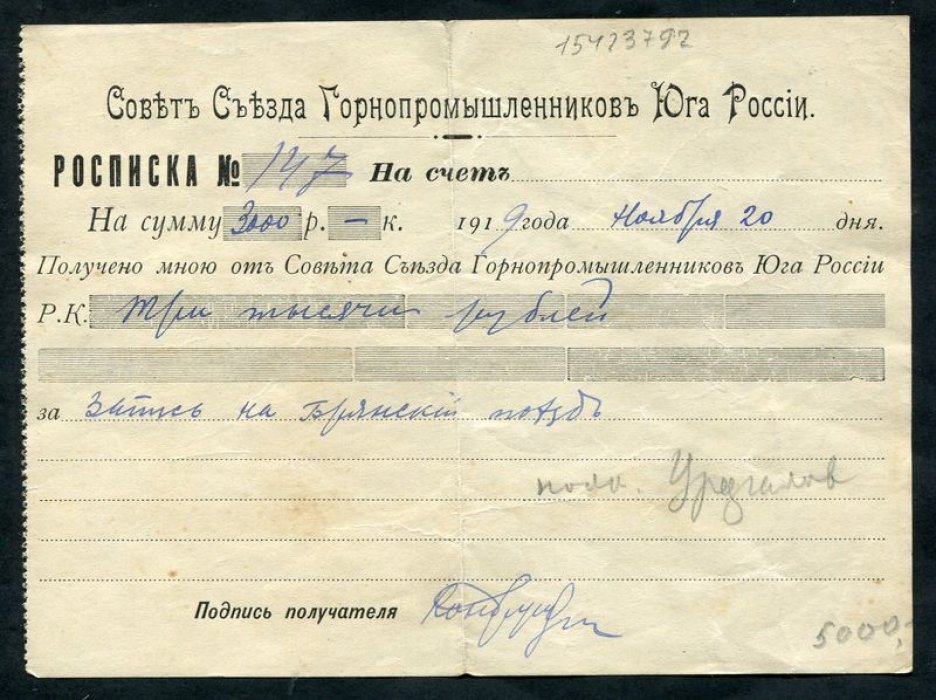 15423792
Совѣтъ Съѣзда Горнопромышленниковъ Юга Россіи.
РОСПИСКА № 147 На счетъ
На сумму 3000 р. — к. 1919 года Ноября 20 дня.
Получено мною отъ Совѣта Съѣзда Горнопромышленниковъ Юга Россіи
Р.К. Три тысячи рублей
за запись на Брянскій поѣздъ
Подпись получателя
5000,-